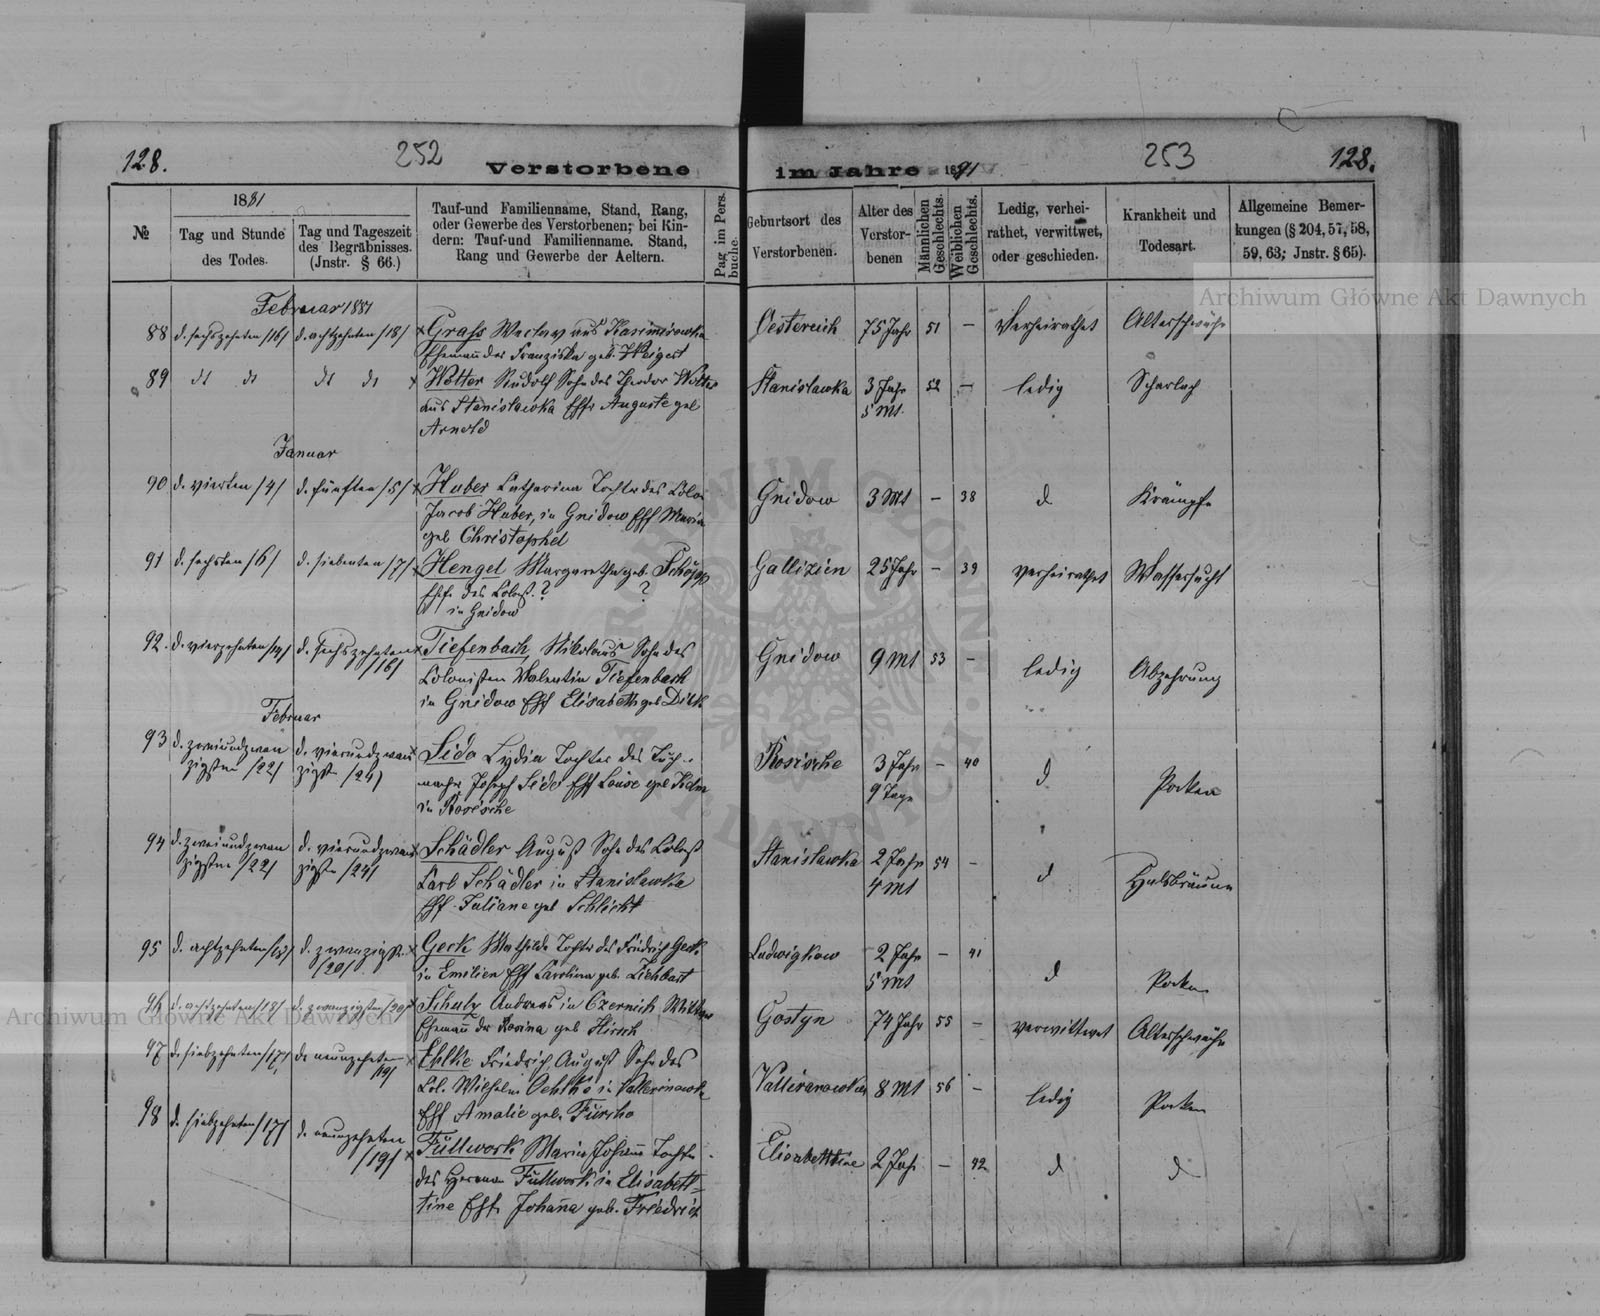 128.
252
Verstorbene
im Jahre 1891
253
128.
№
1881
Tag und Stunde
des Todes.
Tag und Tageszeit
des Begräbnisses.
(Jnstr. § 66.)
Tauf-und Familienname, Stand, Rang,
oder Gewerbe des Verstorbenen; bei Kin-
dern: Tauf-und Familienname. Stand,
Rang und Gewerbe der Aeltern.
Pag im Pers.
buche.
Geburtsort des
Verstorbenen.
Alter des
Verstor-
benen
Männlichen
Geschlechts.
Weiblichen
Geschlechts.
Ledig, verhei-
rathet, verwittwet,
oder geschieden.
Krankheit und
Todesart.
Allgemeine Bemer-
kungen (§ 204, 57, 58,
59, 63; Jnstr. § 65).
Archiwum Główne Akt Dawnych
Februar 1881
88 d. sechszehnten /16/ d. achtzehnten /18/ Waclaw aus Kasimirowka Oestereich 75 Jahr 51 – Verheirathet Altersschwäche
Ehemann der Franziska geb. Weigert
89 dt dt dt dt Wolter Rudolf Sohn des Theodor Wolter Stanislawka 3 Jahr 52 – ledig Scharlach
aus Stanislawka Ehfr Auguste geb 5 Mt.
Arnold
Januar
90 d. vierten /4/ d. fünften /5/ Huber Catharina Tochter des Colon Gnidow 3 Mt – 38 d Krämpfe
Jacob Huber, in Gnidow Ehf Maria
geb Christophel
91 d. sechsten /6/ d. siebenten /7/ Hengel Margaretha geb. Gallizien 25 Jahr – 39 verheirathet Wassersucht
Ehfr. des Colost. ? ?
in Gnidow
92. d. vierzehnten /14/ d. sechszehnten Tiefenbach Nikolaus Sohn des Gnidow 9 Mt 53 – ledig Abzehrung
/16/ Colonisten Valentin Tiefenbach
in Gnidow Ehf Elisabeth geb
Februar
93 d. zweiundzwan d. vierundzwan Lydia Tochter des Tuch- Rosische 3 Jahr – 40 d Pocken
zigsten /22/ zigst /24/ macher Joseph Ehf Louise geb 9 Tage
in Rosische
94 d. zweiundzwan d. vierundzwan Schädler August Sohn des Colost Stanislawka 2 Jahr 54 – d Halsbräune
zigsten /22/ zigst /24/ Carl Schädler in Stanislawka 4 Mt
Ehf. Juliane geb Schlicht
95 d. achtzehnten /18/ d. zwanzigst. Geck Mathilde Tochter des Friedrich Geck Ludwigkow 2 Jahr – 41 d Pocken
/20/ in Emilien Ehf Carolina geb. 5 Mt
96 d. achtzehnten /18/ d. zwanzigsten /20/ Schulz Andreas in Czernich Gostyn 74 Jahr 55 – verwittwet Altersschwäche
Archiwum Główne Akt Dawnych
Ehemann der Rosina geb Hirsch
97 d. siebzehnten /17/ d. neunzehnten Friedrich August Sohn des Valliranowka 8 Mt 56 – ledig Pocken
/19/ Col. Wilhelm in
Ehf Amalie geb.
98 d. siebzehnten /17/ d. neunzehnten Füllwork Maria Johann Tochter Elisabettine 2 Jahr – 42 d d
/19/ des Herman Füllwork in Elisabett-
tine Ehf. Johanna geb. Friedrich